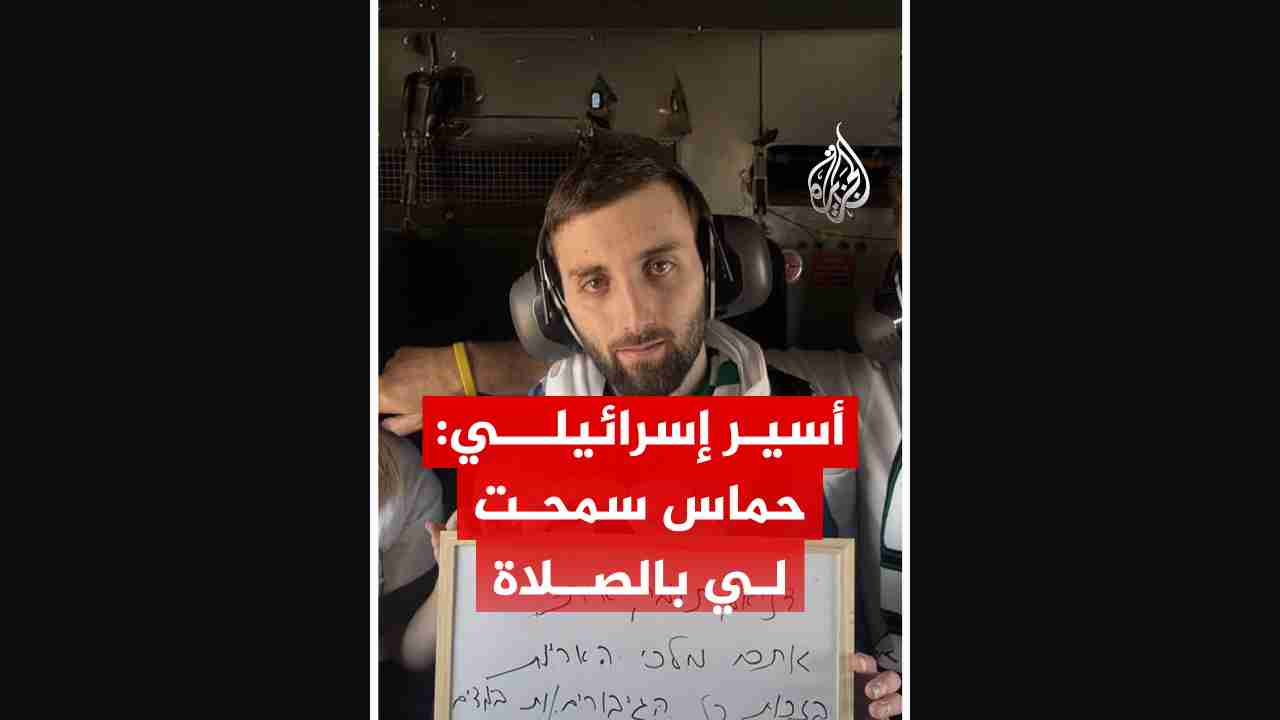 الجزيرة
أسير إسرائيلي:
حماس سمحت
لي بالصلاة
אתם מלכי האריות
בזכות כל הגיבורים/ות במדים